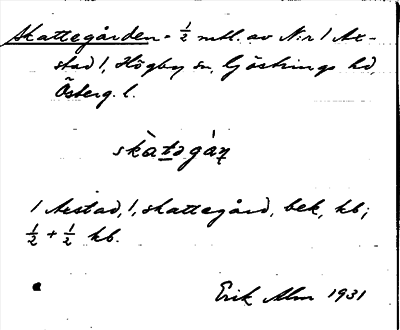 Skattegården = ½ mtl. av N:r 1 Ax-
stad 1, Högby sn, Göstrings hd,
Österg. l.
skàtəgàɳ
1 Axstad, 1, skattegård, bek, kb;
½ + ½ kb.
Erik Alm 1931